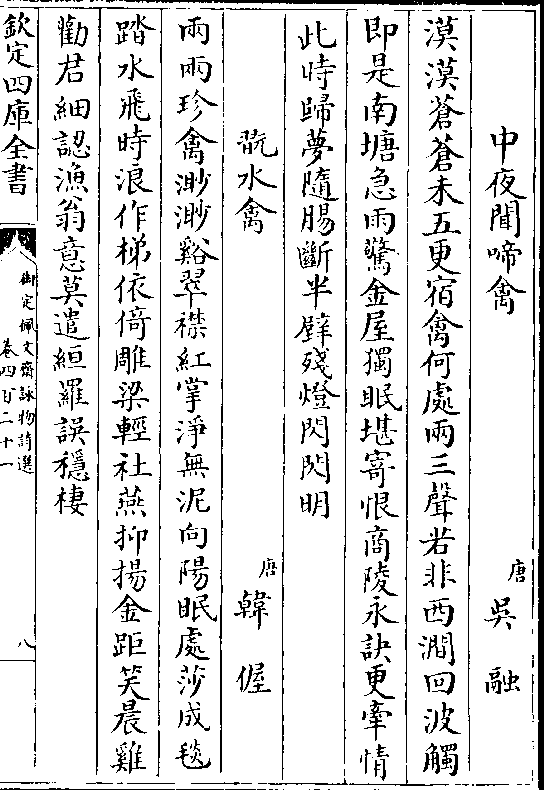 中夜聞啼禽
唐吳融
漠漠蒼蒼未五更宿禽何處兩三聲若非西澗回波觸
即是南塘急雨驚金屋獨眠堪寄恨商陵永訣更牽情
此時歸夢隨腸斷半壁殘燈閃閃明
翫水禽
唐韓偓
兩兩珍禽渺渺谿翠襟紅掌淨無泥向陽眠處莎成毯
踏水飛時浪作梯依倚雕梁輕社燕抑揚金距笑晨雞
勸君細認漁翁意莫遣絙羅誤穩棲
欽定四庫全書
御定佩文齋詠物詩選
卷四百二十一
八